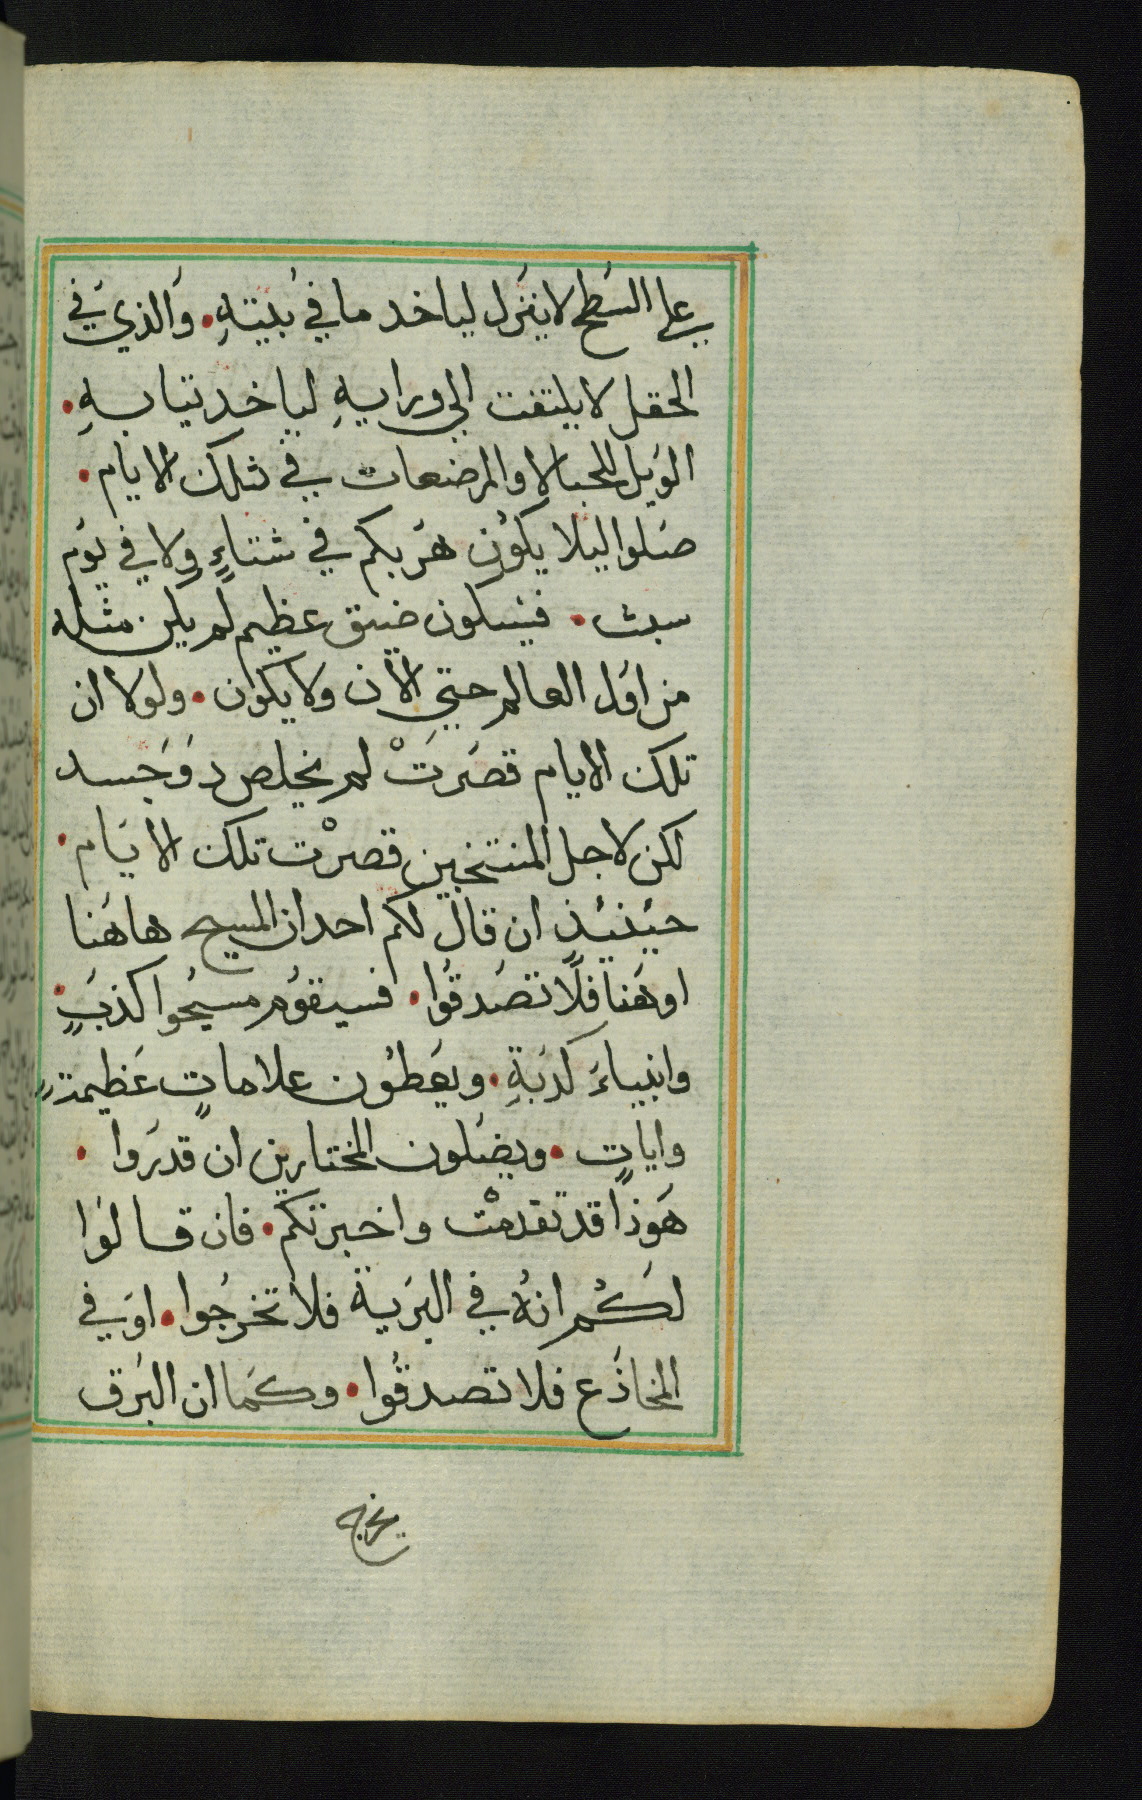 علي السَطح لا ينزل لياخد ما في بَيتهِ. وَالذي في
الحقل لا يلتفت الي ورايهِ لياخد تيابهِ.
الوَيل للحبالا والمرضعات في تلك الايام.
صَلوا ليلا يكوُن هَربكم في شتاءٍ ولا في يوَم
سبت. فيسكون ضيق عظيم لم يكن مثله
من اوَل العالم حتي الآن ولا يكوُن. ولولا ان
تلك الايام قصَرَتْ لم يخلص دوَجَسد
لكن لاجل المنتخبين قصرْت تلك الايَام.
حيَنيَذٍ ان قال لكم احد ان المسيح هاهَنا
او هَنا فلَا تصَدقوُا. فسيقوُم مسيحُوا كذبَةٍ.
وانبياءَ كدَبةِ. ويعَطوُن علاماتٍ عَظيمةٍ
واياتٍ. ويضَلون المختارين ان قدرَوا.
هَوذا قد تقدمْت واخبرتكم. فان قالوَا
لكُم انهُ في البَرية فلا تخرجُوا. اوَ في
المخادَع فلا تصدقوُا. وكمَا ان البَرق
يخرج